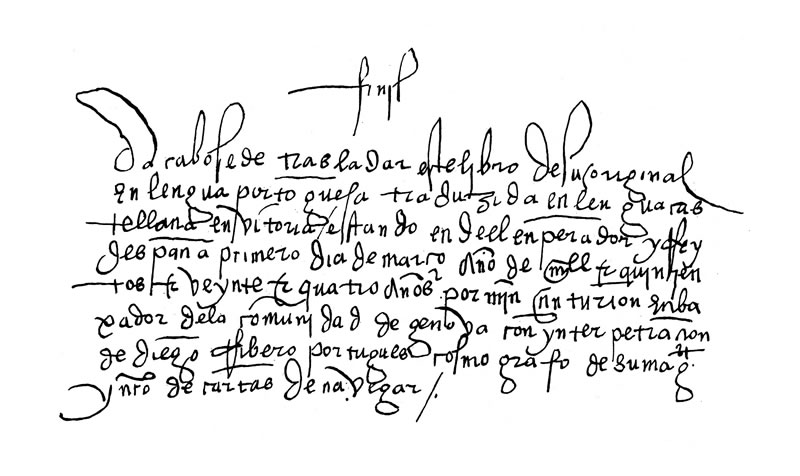 finis
Dacabose de trasladar este libro de su original
en lengua portoguesa traduzida en lengua cas
tellana en vitoria estando en de el enperador y Rey
despaña primero dia de março dño de mill e quinien
tos e veynte e quatro años por mĩn cinturion enba
xador dela comunidad de genova con ynterpetraçion
de diego Ribero portugues cosmografo de su mag.t
y mro de cartas de navegar /.